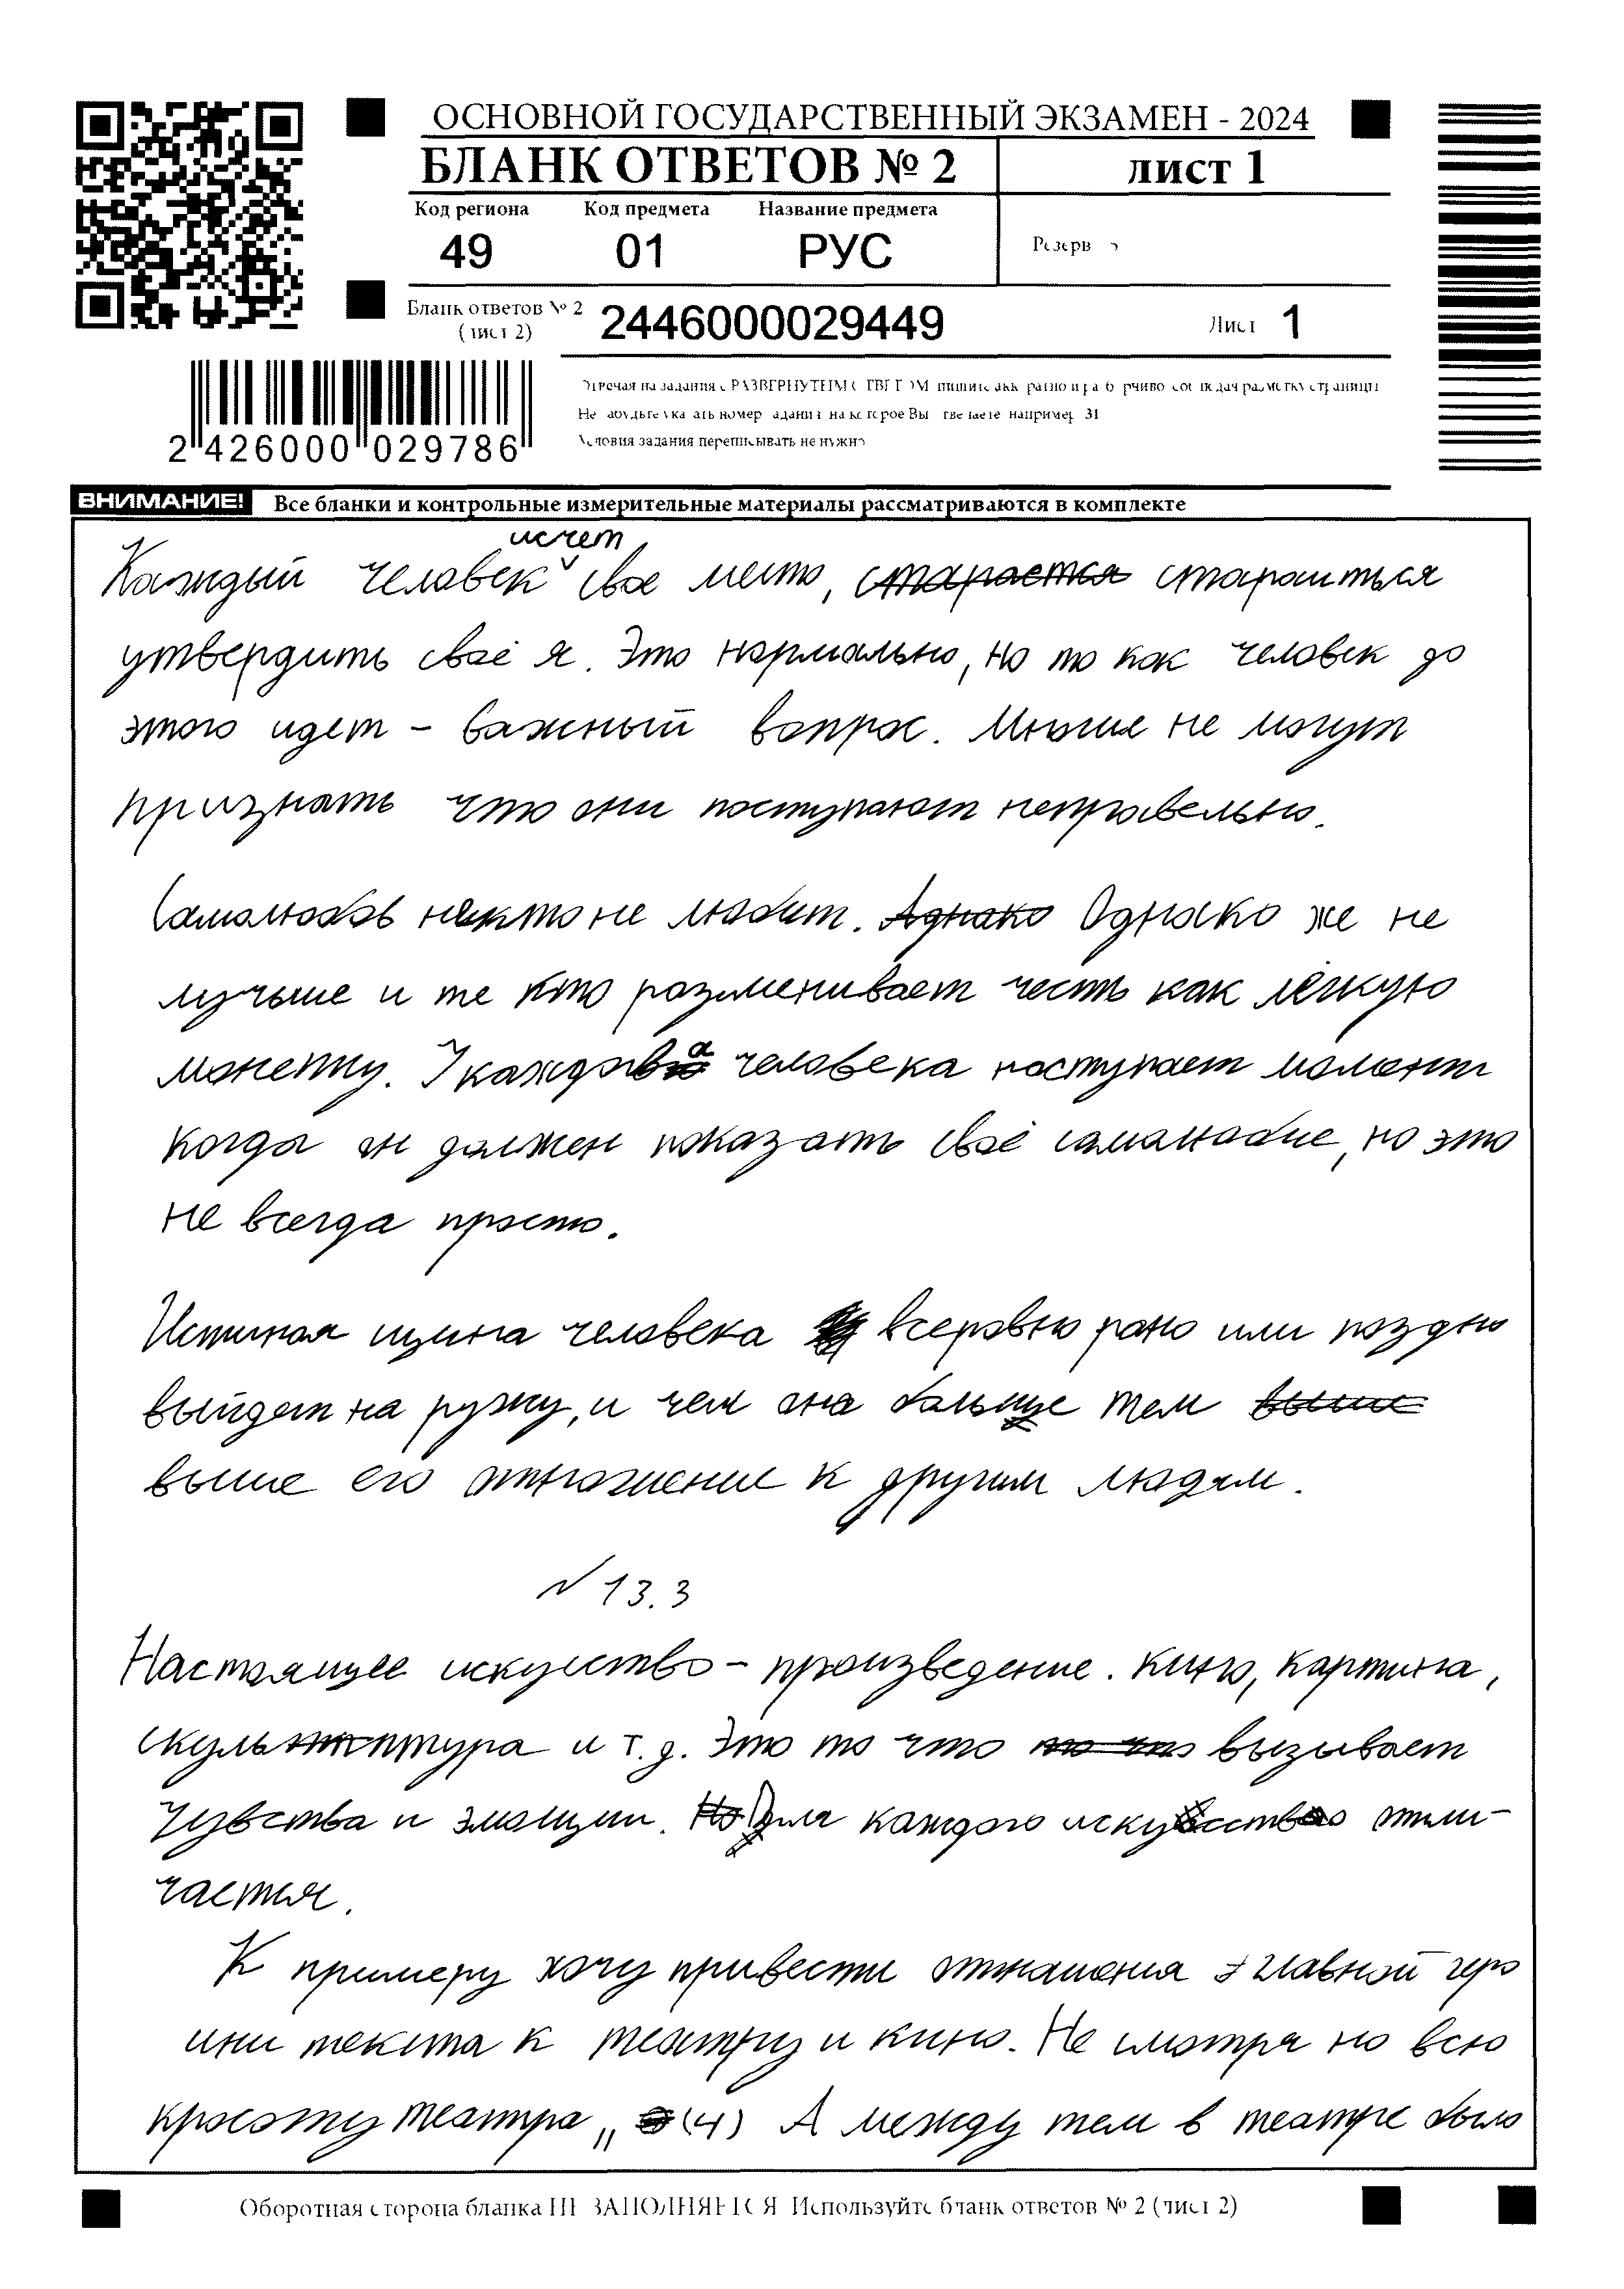 ОСНОВНОЙ ГОСУДАРСТВЕННЫЙ ЭКЗАМЕН - 2024
БЛАНК ОТВЕТОВ № 2
лист 1
Код региона Код предмета Название предмета
49 01 РУС
Резерв
Бланк ответов № 2
(лист 2)
2446000029449
Лист 1
2 426000 029786
Отвечая на задания с РАЗВЕРНУТЫМ ОТВЕТОМ пишите аккуратно и разборчиво соблюдая разметку страницы
Не забудьте указать номер задания на которое Вы отвечаете например 31
Условия задания переписывать не нужно
ВНИМАНИЕ! Все бланки и контрольные измерительные материалы рассматриваются в комплекте
исчет
Каждый человек свое место, старается старошиться
утвердить своё я. Это нормально, но то как человек до
этого идет - важный вопрос. Многие не могут
признать что они поступают неправельно.
Самолюбов некто не любит. Аднако Однако же не
лучьше и те кто разменивает честь как лёгкую
монетку. У каждова человека наступает момент
когда он должен показать своё самалюбие, но это
не всегда просто.
Истиная щина человека всеровно рано или поздно
выйдет на ружу, и чем она больще тем выше
выше его отношение к другим людям.
№ 13.3
Настоящее искусство - произведение. Кино, картина,
скульптура и т.д. Это то что то что вызывает
чувства и эмоции. Но для каждого искусство отли-
чается.
К примеру хочу привести отнашения главной геро
ини текста к театру и кино. Не смотря на всю
красоту театра, „(4) А между тем в театре было
Оборотная сторона бланка НЕ ЗАПОЛНЯЕТСЯ Используйте бланк ответов № 2 (лист 2)